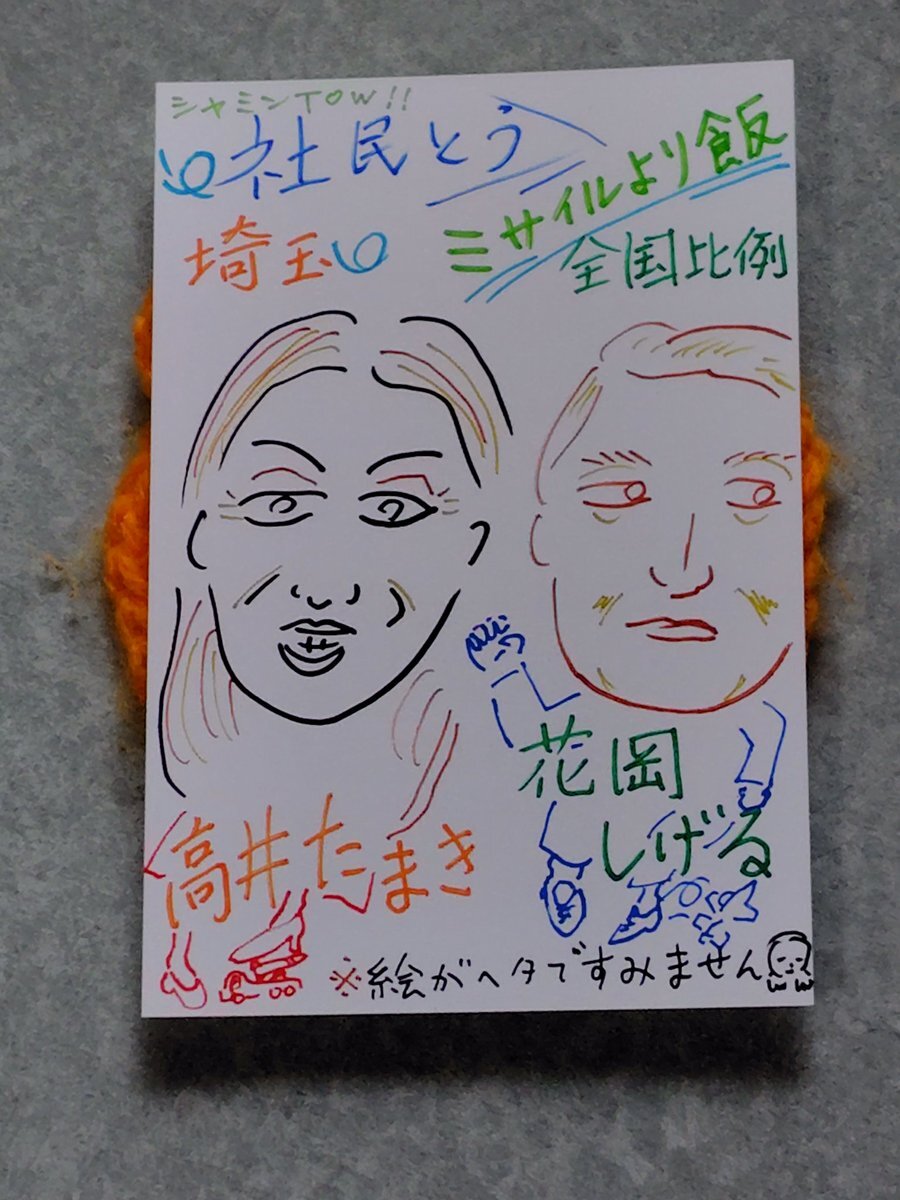 シャミンTOW!!
社民とう
ミサイルより飯
埼玉
全国比例
花岡
しげる
高井たまき
※絵がヘタですみません